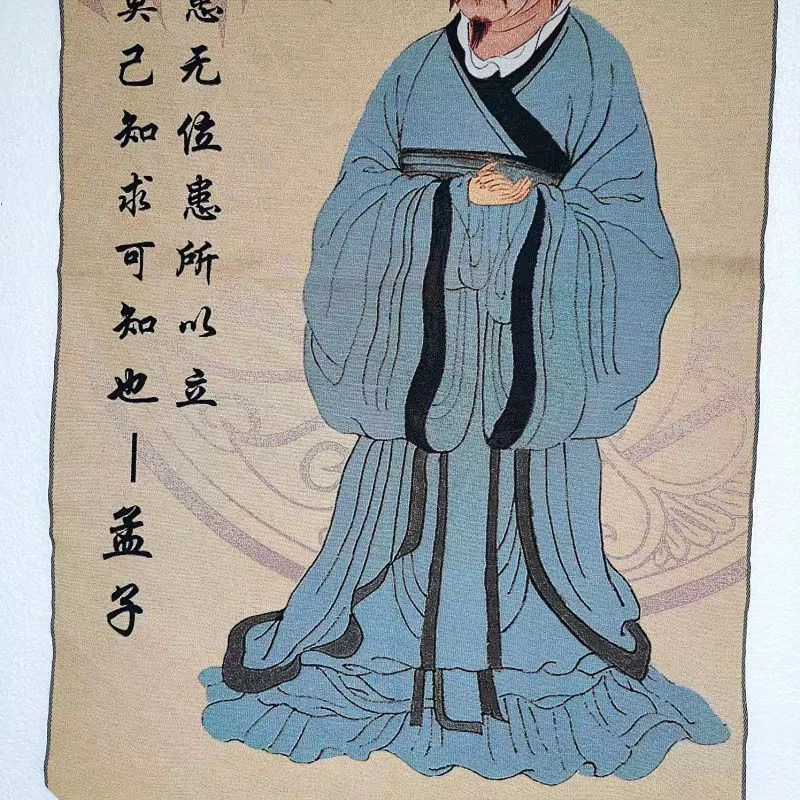 患无位患所以立
莫己知求可知也—孟子